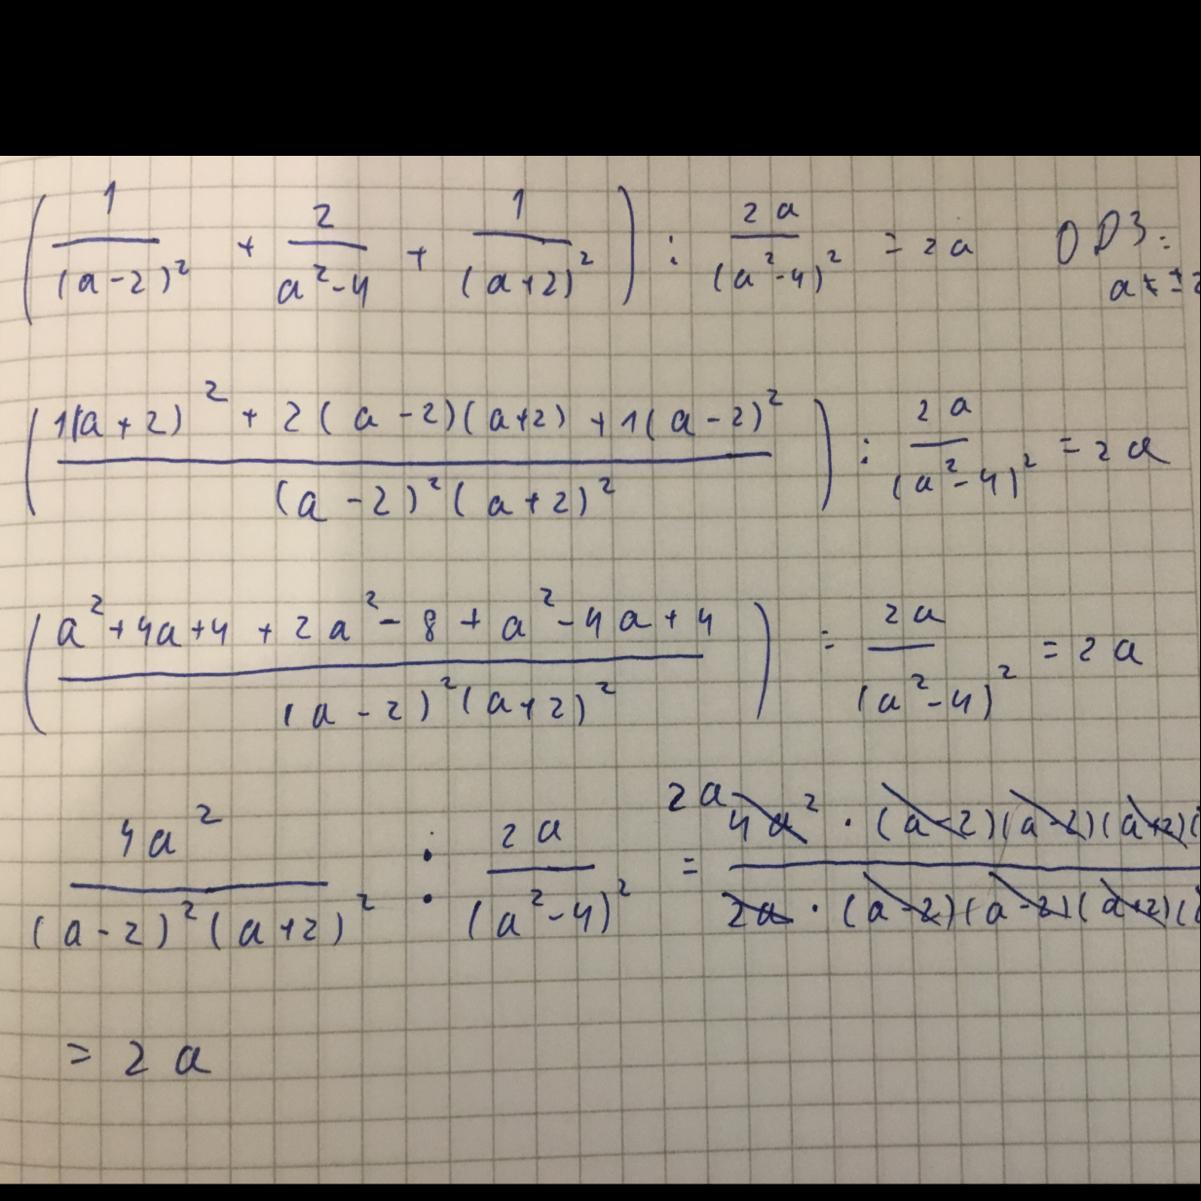 (1/(a-2)² + 2/(a²-4) + 1/(a+2)²) : 2a/(a²-4)² = 2a ОДЗ: a ≠ ±2
((1(a+2)² + 2(a-2)(a+2) + 1(a-2)²)/((a-2)²(a+2)²)) : 2a/(a²-4)² = 2a
((a²+4a+4 + 2a²-8 + a²-4a+4)/((a-2)²(a+2)²)) : 2a/(a²-4)² = 2a
4a²/((a-2)²(a+2)²) : 2a/(a²-4)² = 2a 4a² · (a-2)(a-2)(a+2)( / 2a · (a-2)(a-2)(a+2)(
= 2a